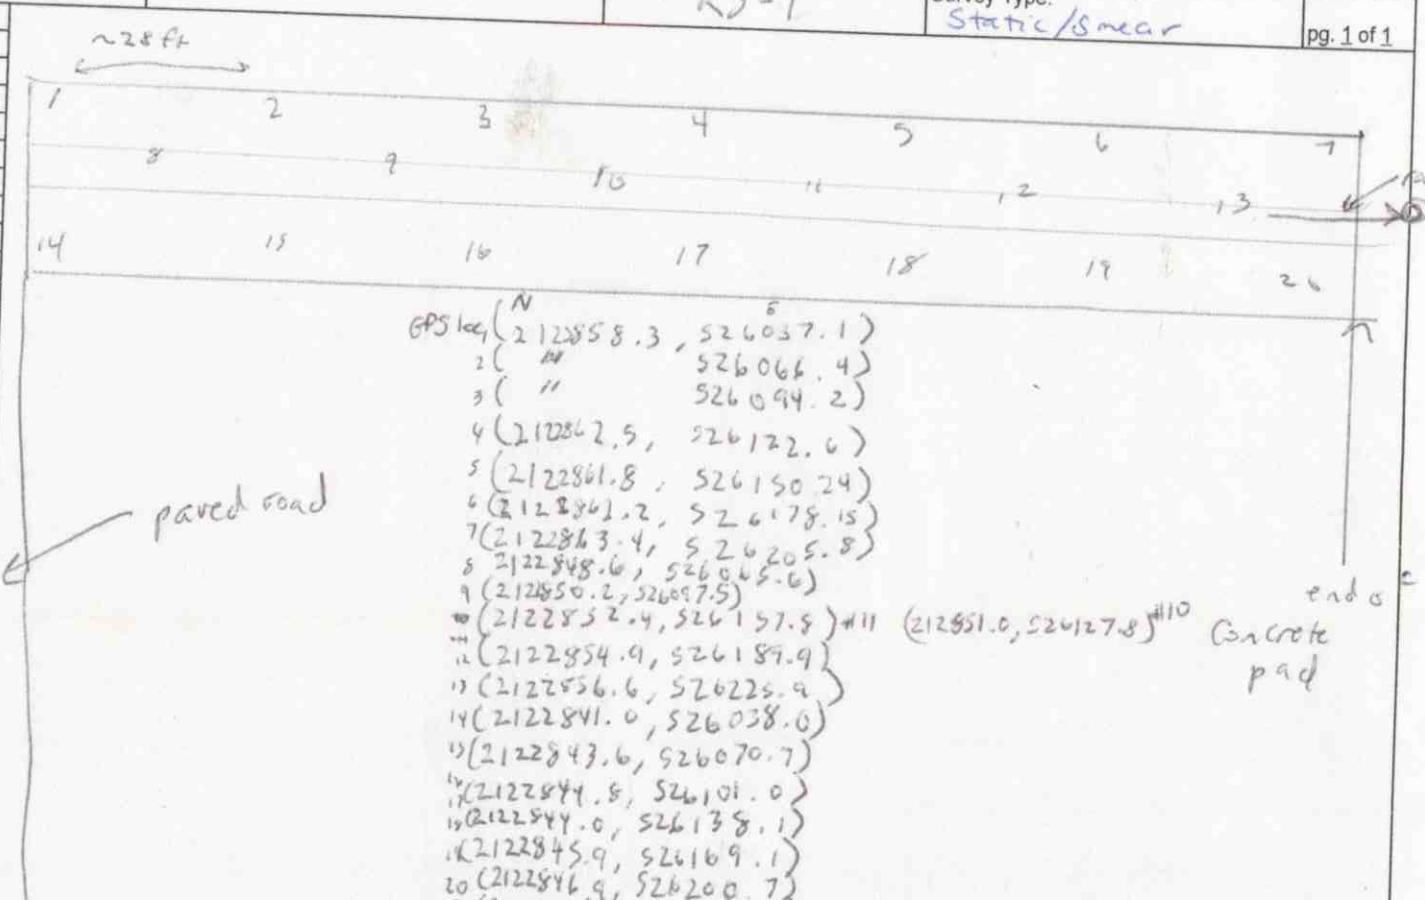 Static/Smear
pg. 1 of 1
~28 ft
1 2 3 4 5 6 7
8 9 10 11 12 13
14 15 16 17 18 19 20
N E
GPS loc, (2122858.3, 526037.1)
2 ( " 526066.4)
3 ( " 526094.2)
4 (2122862.5, 526122.6)
5 (2122861.8, 526150.24)
6 (2122862.2, 526178.15)
7 (2122863.4, 526205.8)
8 2122848.6, 526065.6)
9 (212850.2, 526097.5)
(2122852.4, 526157.8) #11 (212851.0, 526127.8) #10
12 (2122854.9, 526189.9)
13 (2122856.6, 526225.9)
14 (2122841.0, 526038.0)
15 (2122843.6, 526070.7)
(2122844.8, 526101.0)
(2122844.0, 526138.1)
(2122845.9, 526169.1)
20 (2122846.9, 526200.7)
paved road
end of
Concrete
pad